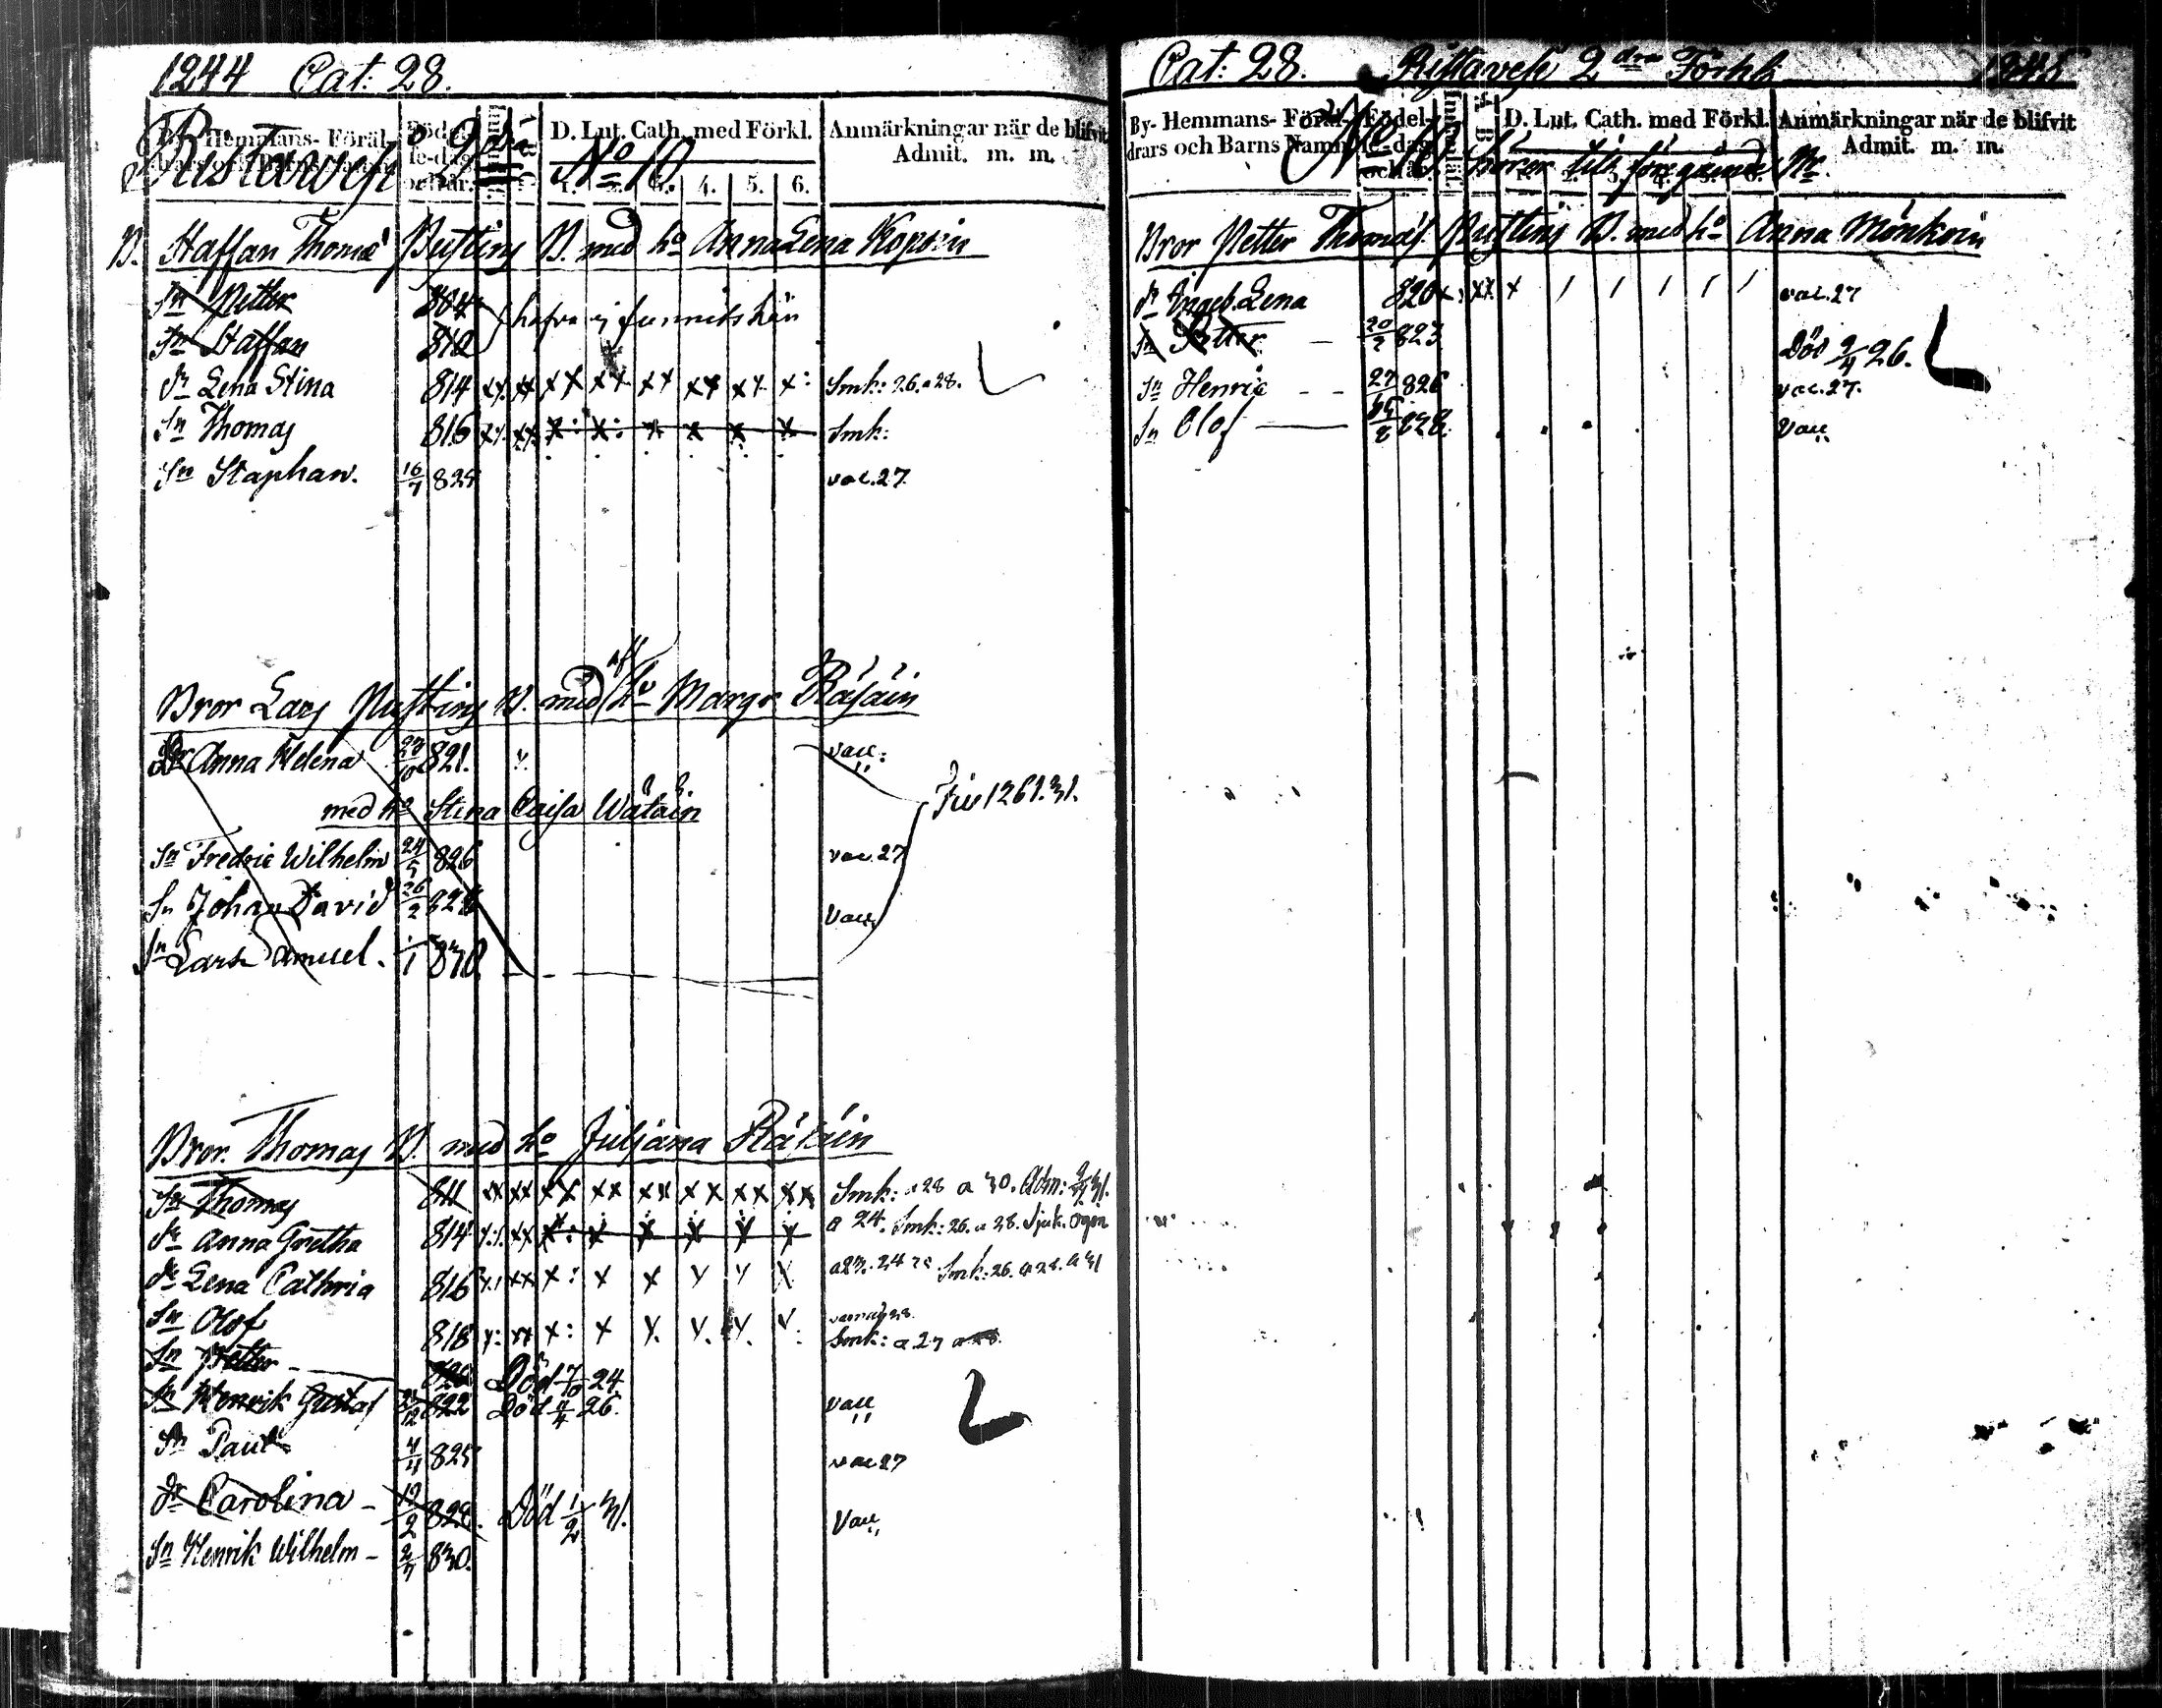 1244 Cat: 28.
By- Hemmans- Föräldrars och Barns Namn
Födelse-dag och år.
D. Lut. Cath. med Förkl.
1. 2. 3. 4. 5. 6.
Anmärkningar när de blifvit Admit. m. m.
Ristavesi 2dra No 10
B. Staffan Thoms Pustins B. med ho Anna Lena Kopsin
Sn Petter 804
hafva ej funnits här
Sn Staffan 810
dr Lena Stina 814 Smk: 26. a 28.
Sn Thomas 816 Smk:
Sn Staphan. 16/7 825 vac. 27
Bror Lars Pustins B. med ho Margr Räsäin
dr Anna Helena 821. vacc:
med ho Stina Caisa Wätäin
1261.31.
Sn Fredric Wilhelm 24/5 826 vac. 27
Sn Johan David 26/2 828 Vacc
Sn Lars Samuel. 1/1 830
Bror Thomas B. med ho Juliana Rätäin
Sn Thomas 811 Smk: a 28 a 30. Adm: 31.
dr Anna Gretha 814 a 24. Smk: 26. a 28. Sjuk. ögon
dr Lena Cathria 816 Smk: 26. a 28. a 31
Sn Olof 818 Smk: a 27 a 28.
Sn Petter 820 Död 7/10 24.
Sn Henrik Gustaf 822 Död 26. vacc
Sn Paul 4/4 825 vac 27
dr Carolina 19/2 828. Död 1/2 31. Vacc
Sn Henrik Wilhelm 2/7 830.
Cat: 28. Ristavesi 2dra Förhl 1245
By- Hemmans- Föräldrars och Barns Namn
Födelse-dag och år.
D. Lut. Cath. med Förkl.
Anmärkningar när de blifvit Admit. m. m.
No 10 hörer till föregående Nr.
Bror Petter Thoms Pustins B. med ho Anna Mönköin
dr Ingeb. Lena 820 vac. 27
Sn Petter 20/2 823 Död 26.
Sn Henric 27 826 vac. 27.
Sn Olof 828. Vacc